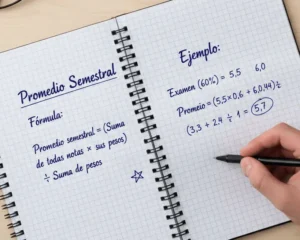 Promedio Semestral
Fórmula:
Promedio semestral = (Suma
de todas notas × sus pesos)
÷ Suma de pesos
Ejemplo:
Examen (60%) = 5,5 6,0
Promeio = (5,5×0,6 + 6,0.44)÷
(3,3 + 2,4 ÷ 1 = 5,7